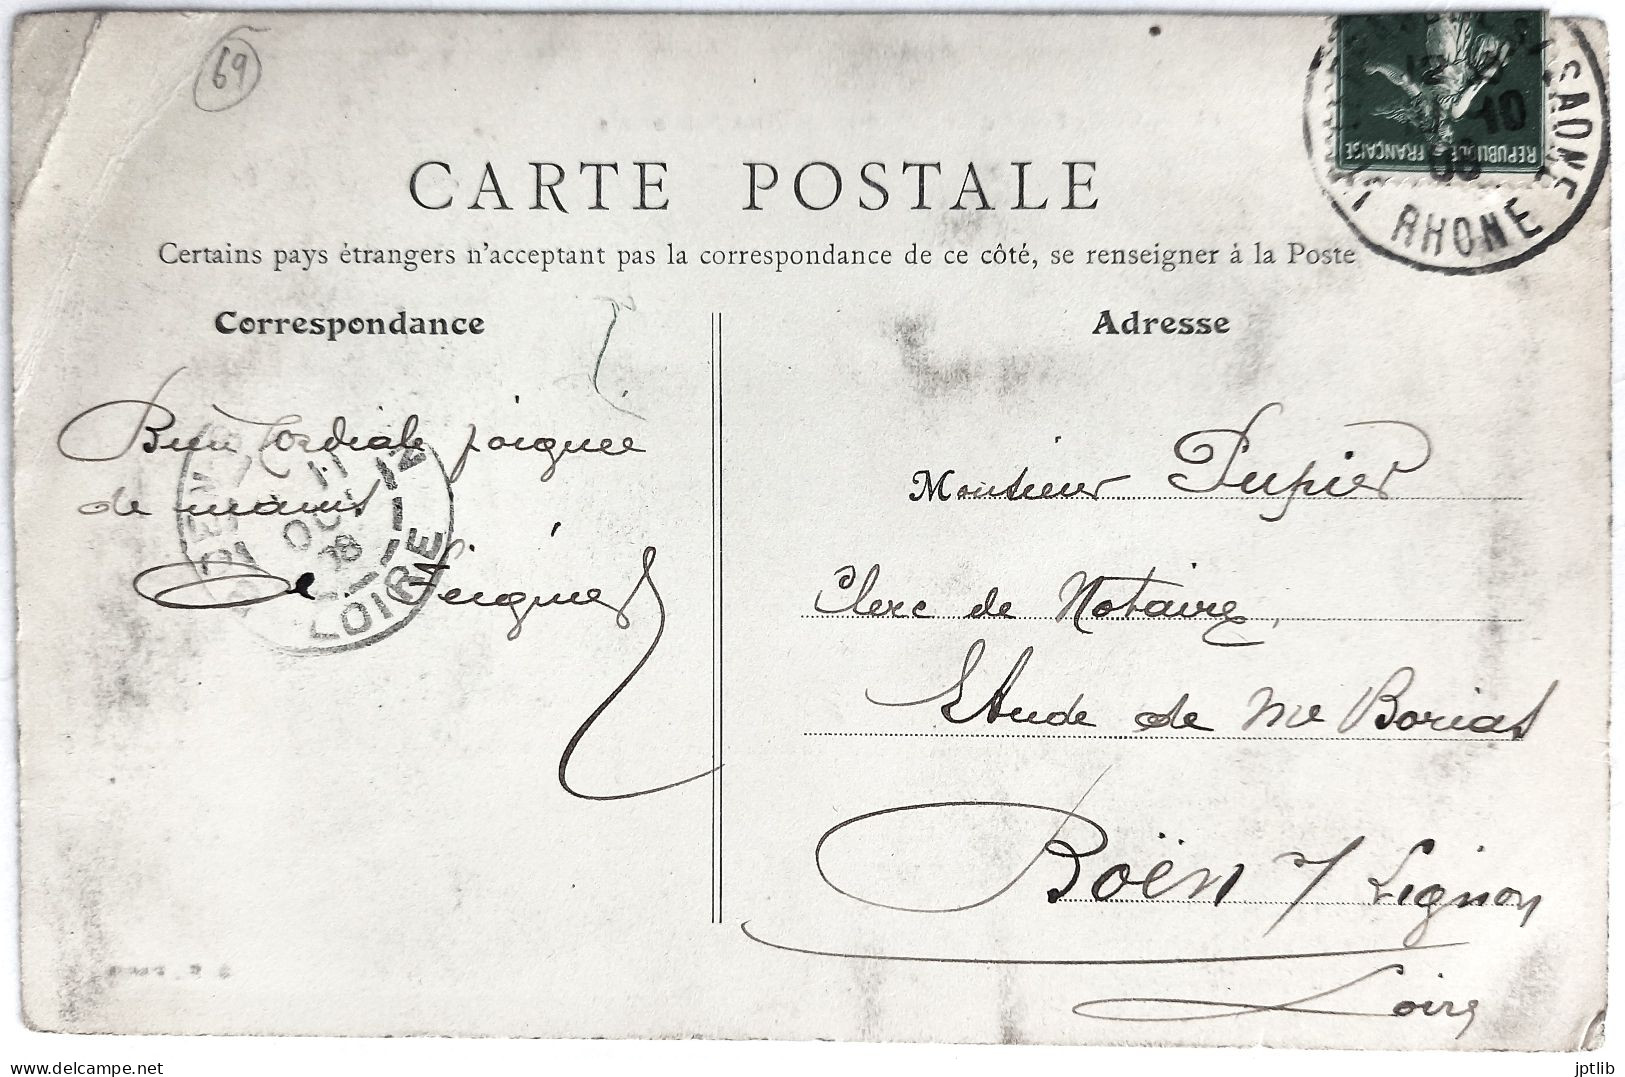 69
CARTE POSTALE
Certains pays étrangers n'acceptent pas la correspondance de ce côté, se renseigner à la Poste
Correspondance
Adresse
REPUBLIQUE FRANÇAISE
10
08
SAONE
RHONE
Bien Cordiale poignée
de mains
11
OCT
08
LOIRE
Monsieur Pupier
Clerc de Notaire,
Etude de Me Boriat
Boën s/ Lignon
Loire
www.delcampe.net
jptlib